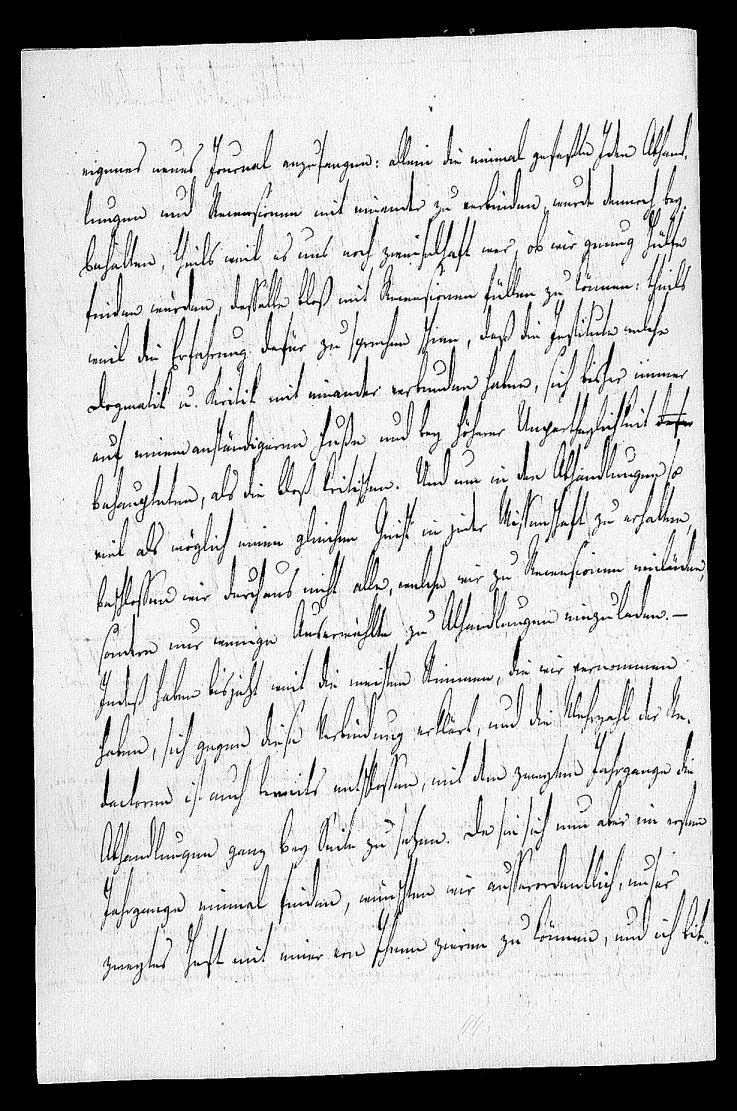 eigenes neues Journal anzufangen: allein die einmal gefaßte Idee Abhand-
lungen und Recensionen mit einander zu verbinden, wurde dennoch bey-
behalten, theils weil es uns noch zweifelhaft war, ob wir genug Hülfe
finden würden, dasselbe bloß mit Recensionen füllen zu können: theils
weil die Erfahrung dafür zu sprechen schien, daß die Institute welche
Dogmatik u. Kritik mit einander verbunden haben, sich bisher immer
auf einem anständigeren Fuße und bey höherer Unpartheylichkeit
behaupteten, als die bloß kritischen. Und um in den Abhandlungen so
viel als möglich einen gleichen Geist in jeder Wissenschaft zu erhalten,
beschlossen wir durchaus nicht alle, welche wir zu Recensionen einlüden,
sondern nur wenige Auserwählte zu Abhandlungen einzuladen. —
Indeß haben bis jetzt mit die meisten Stimmen, die wir vernommen
haben, sich gegen diese Verbindung erklärt, und die Mehrzahl der Re-
dactoren ist auch bereits entschlossen, mit dem zweyten Jahrgange die
Abhandlungen ganz bey Seite zu setzen. Da sie sich nun aber im ersten
Jahrgange einmal finden, wünschten wir ausserordentlich, unser
zweytes Heft mit einer von Ihnen zieren zu können, und ich bit-